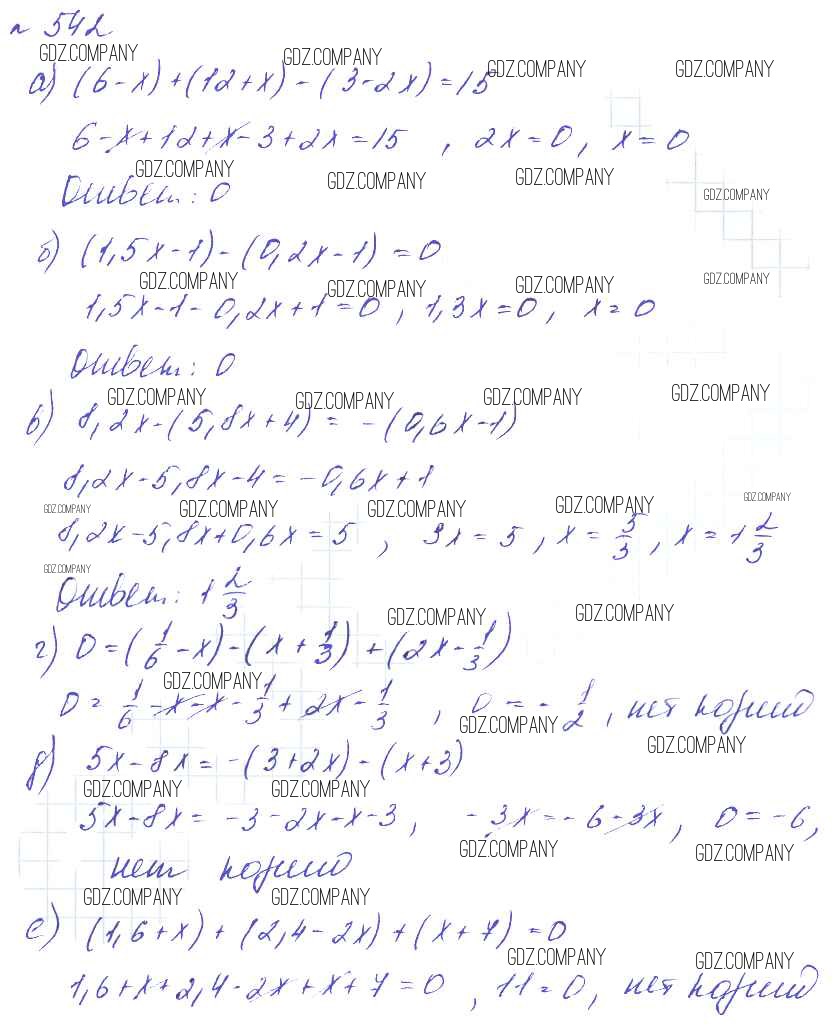 № 542
GDZ.COMPANY GDZ.COMPANY GDZ.COMPANY GDZ.COMPANY
а) (6-x)+(12+x)-(3-2x)=15
6-x+12+x-3+2x=15, 2x=0, x=0
GDZ.COMPANY GDZ.COMPANY GDZ.COMPANY GDZ.COMPANY
Ответ: 0
б) (1,5x-1)-(0,2x-1)=0
GDZ.COMPANY GDZ.COMPANY GDZ.COMPANY GDZ.COMPANY
1,5x-1-0,2x+1=0, 1,3x=0, x=0
Ответ: 0
GDZ.COMPANY GDZ.COMPANY GDZ.COMPANY GDZ.COMPANY
в) 8,2x-(5,8x+4)=-(0,6x-1)
8,2x-5,8x-4=-0,6x+1
GDZ.COMPANY GDZ.COMPANY GDZ.COMPANY GDZ.COMPANY GDZ.COMPANY
8,2x-5,8x+0,6x=5, 3x=5, x=5/3, x=1 2/3
GDZ.COMPANY
Ответ: 1 2/3
GDZ.COMPANY GDZ.COMPANY
г) 0=(1/6-x)-(x+1/3)+(2x-1/3)
GDZ.COMPANY
0=1/6-x-x-1/3+2x-1/3, 0=-1/2, нет корней
GDZ.COMPANY GDZ.COMPANY
д) 5x-8x=-(3+2x)-(x+3)
GDZ.COMPANY GDZ.COMPANY
5x-8x=-3-2x-x-3, -3x=-6-3x, 0=-6,
GDZ.COMPANY GDZ.COMPANY
нет корней
GDZ.COMPANY GDZ.COMPANY
е) (1,6+x)+(2,4-2x)+(x+7)=0
GDZ.COMPANY GDZ.COMPANY
1,6+x+2,4-2x+x+7=0, 11=0, нет корней